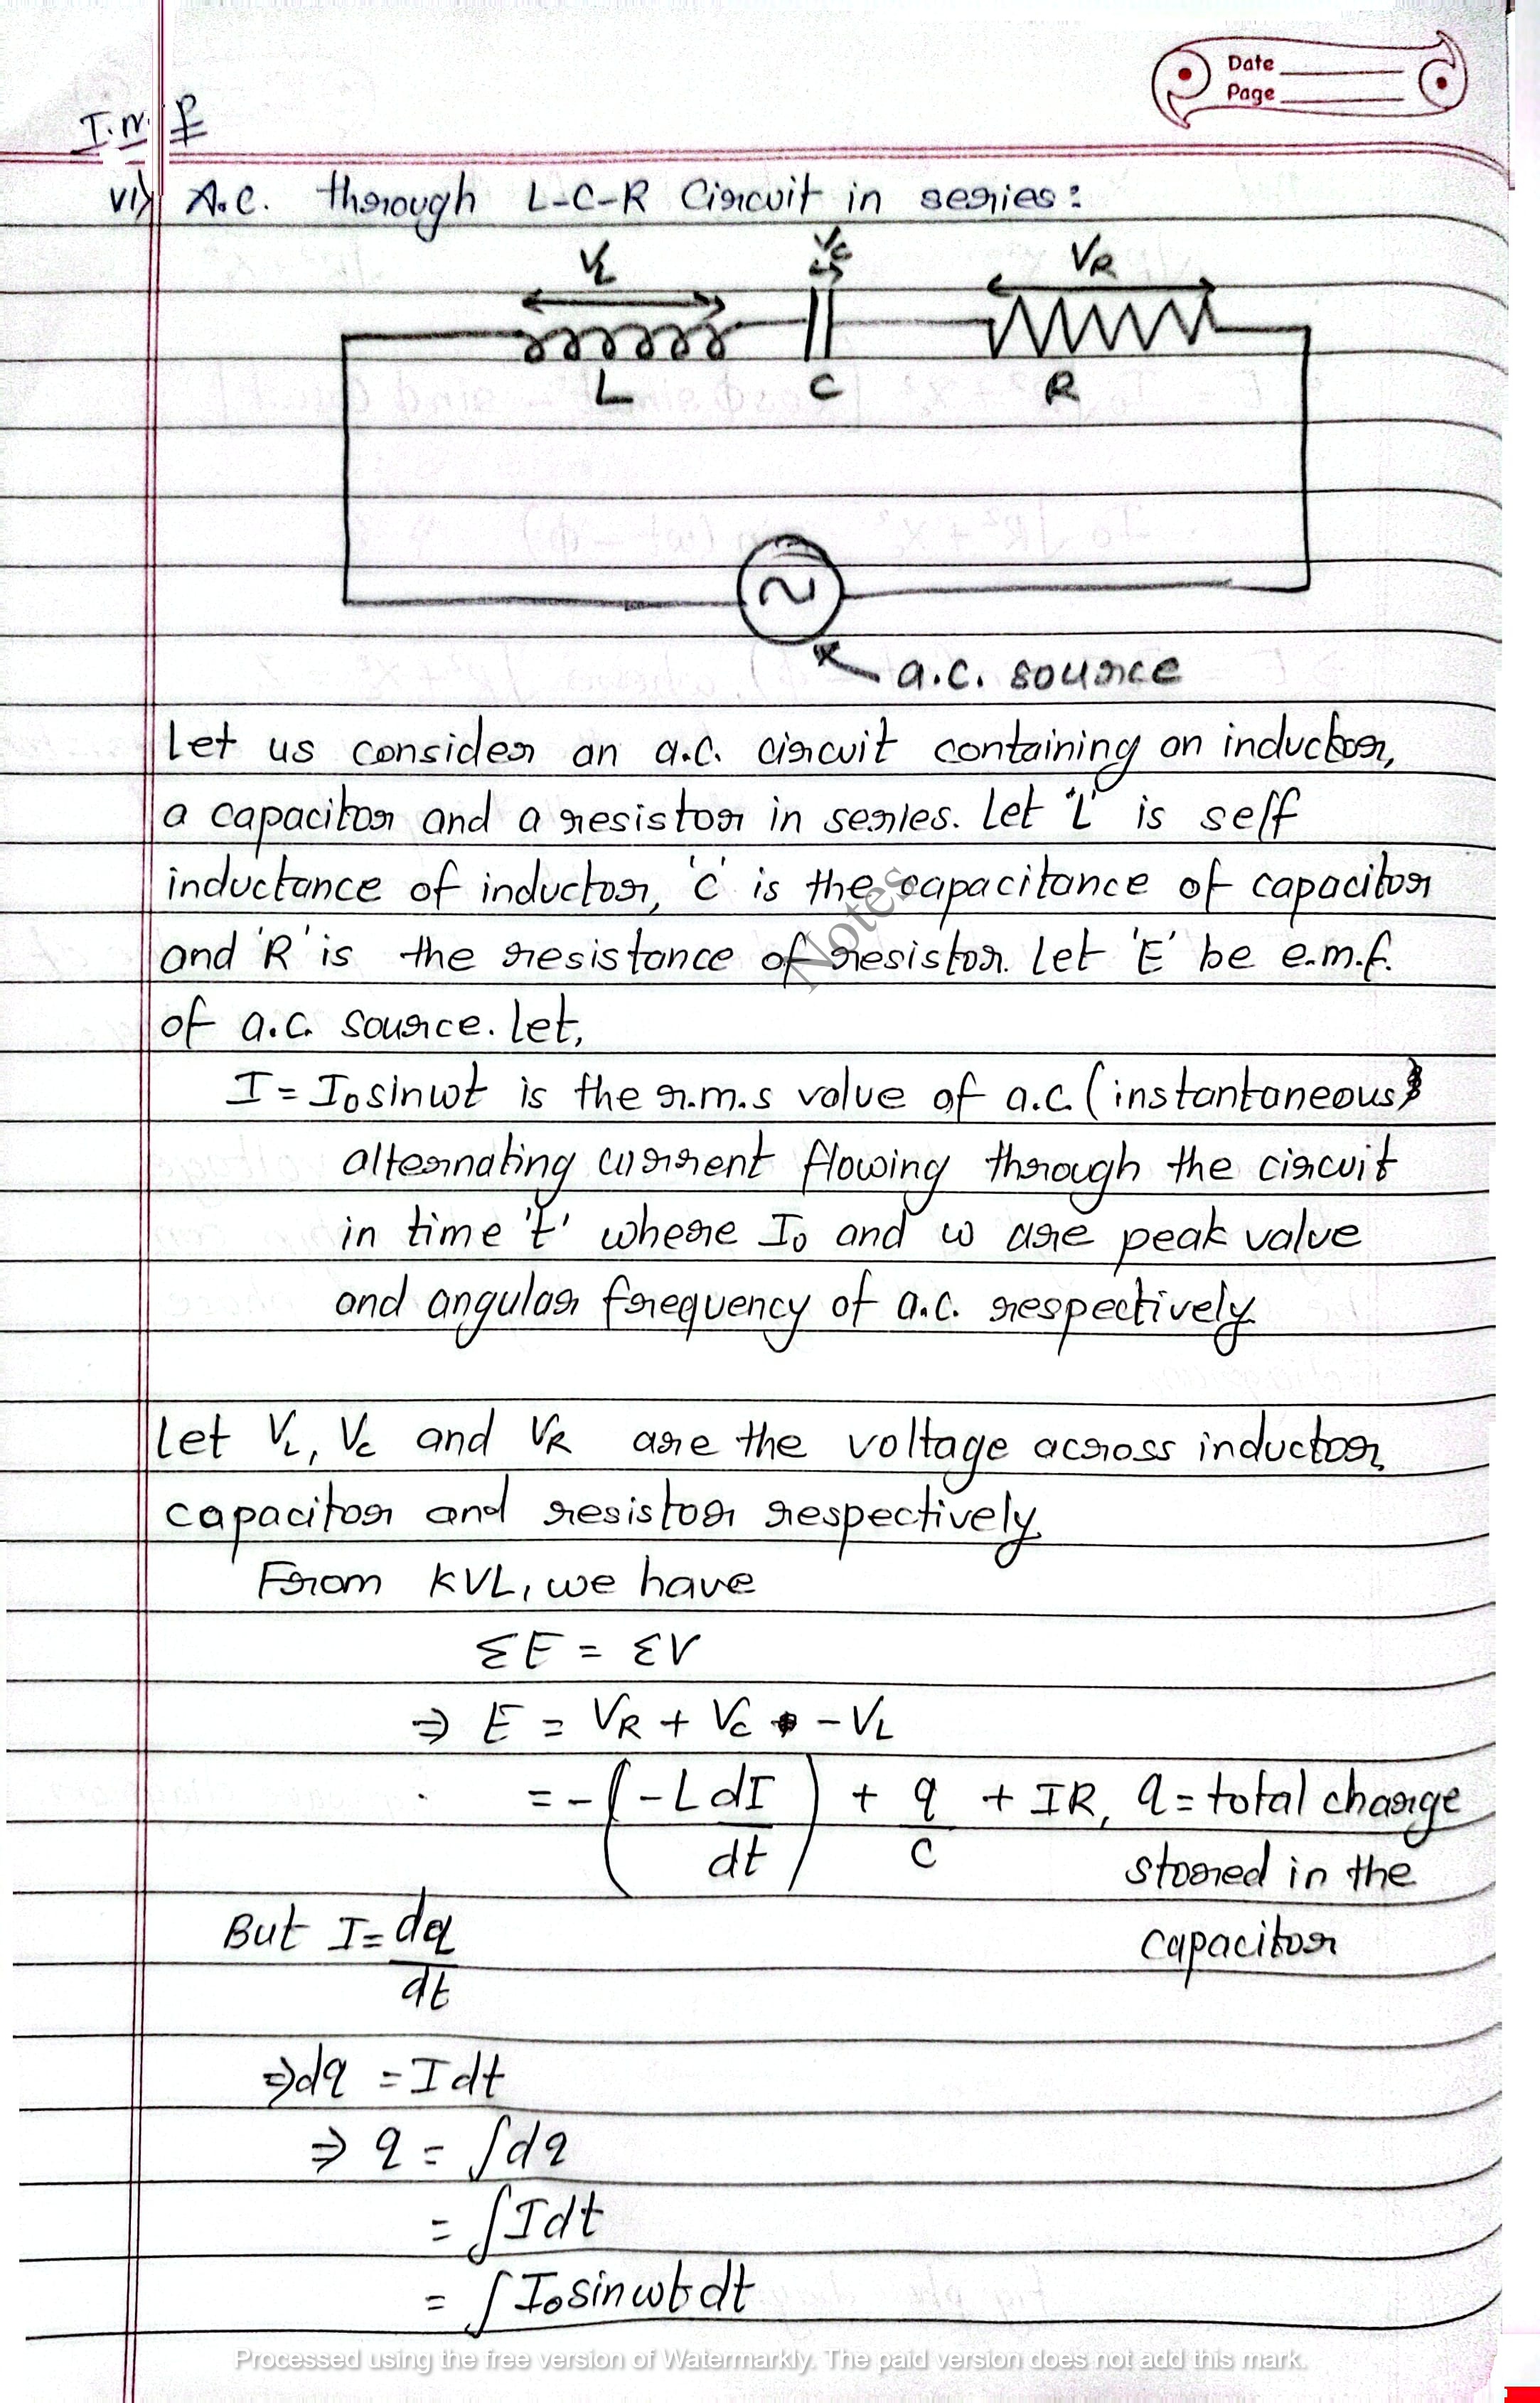 Date
Page
I.m.p
vi) A.C. through L-C-R Circuit in series:
VL VC VR
L C R
~
a.c. source
Let us consider an a.c. circuit containing an inductor,
a capacitor and a resistor in series. Let 'L' is self
inductance of inductor, 'C' is the capacitance of capacitor
and 'R' is the resistance of resistor. Let 'E' be e.m.f.
of a.c. source. Let,
I = I₀sinωt is the r.m.s value of a.c. (instantaneous)
alternating current flowing through the circuit
in time 't' where I₀ and ω are peak value
and angular frequency of a.c. respectively.
Let VL, VC and VR are the voltage across inductor,
capacitor and resistor respectively.
From KVL, we have
ΣE = ΣV
⇒ E = VR + VC - VL
= -(-L dI/dt) + q/C + IR, q = total charge
stored in the
capacitor
But I = dq/dt
⇒ dq = Idt
⇒ q = ∫dq
= ∫Idt
= ∫I₀sinωt dt
Notes
Processed using the free version of Watermarkly. The paid version does not add this mark.